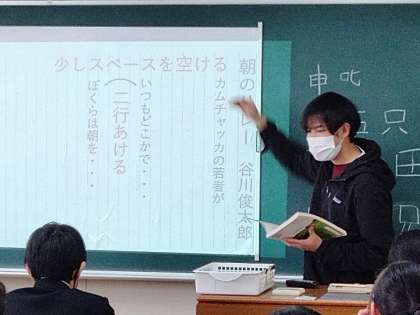 朝のリレー　谷川俊太郎
カムチャッカの若者が
少しスペースを空ける
いつもどこかで・・・
(二行あける
ぼくらは朝を・・・
叱
申
只
田
兄